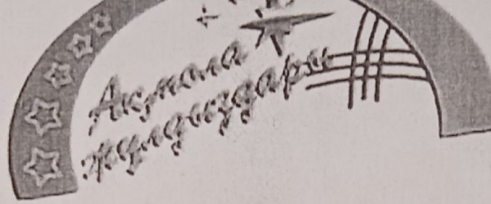 Ақмола
жұлдыздары